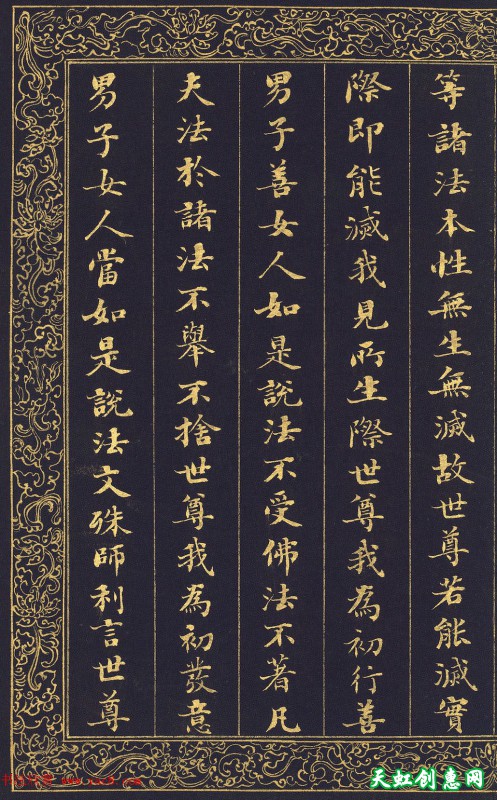 等諸法本性無生無滅故世尊若能滅實
際即能滅我見所生際世尊我為初行善
男子善女人如是說法不受佛法不著凡
夫法於諸法不舉不捨世尊我為初發意
男子女人當如是說法文殊師利言世尊
天虹创意网